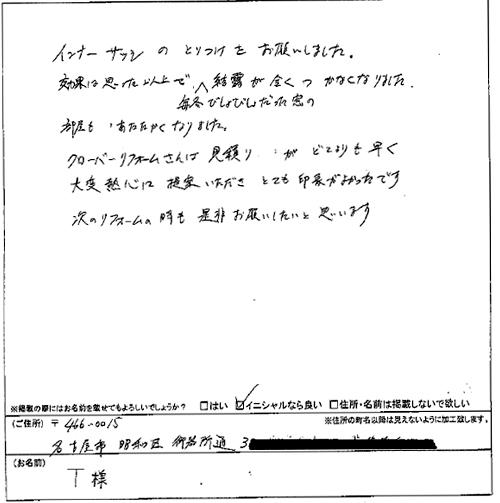 インナーサッシの とりつけを お願いしました。
効果は思った以上で、結露が全くつかなくなりました。
毎冬びしょびしょだった窓の
部屋も あたたかくなりました。
クローバーリフォームさんは 見積り が とてもり早く
大変熱心に 提案いただき とても印象がよかったです
次のリフォームの時も 是非お願いしたいと思います
※掲載の際にはお名前を載せてもよろしいでしょうか? □はい ☑イニシャルなら良い □住所・名前は掲載しないで欲しい
(ご住所) 〒466-0015 ※住所の町名以降は見えないように加工致します。
名古屋市 昭和区 御器所通 3
(お名前)
T 様